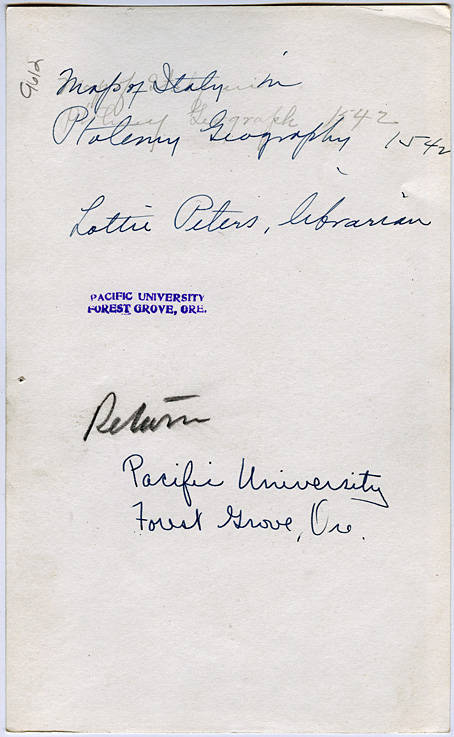 962
Map of Italy in
Ptolemy Geography 1542
Lottie Peters, librarian
PACIFIC UNIVERSITY
FOREST GROVE, ORE.
Return
Pacific University
Forest Grove, Ore.